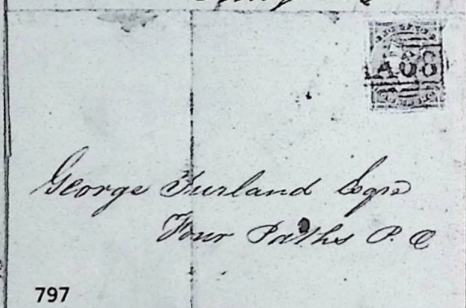 A68
George Furland Esqre
Four Paths P. O
797